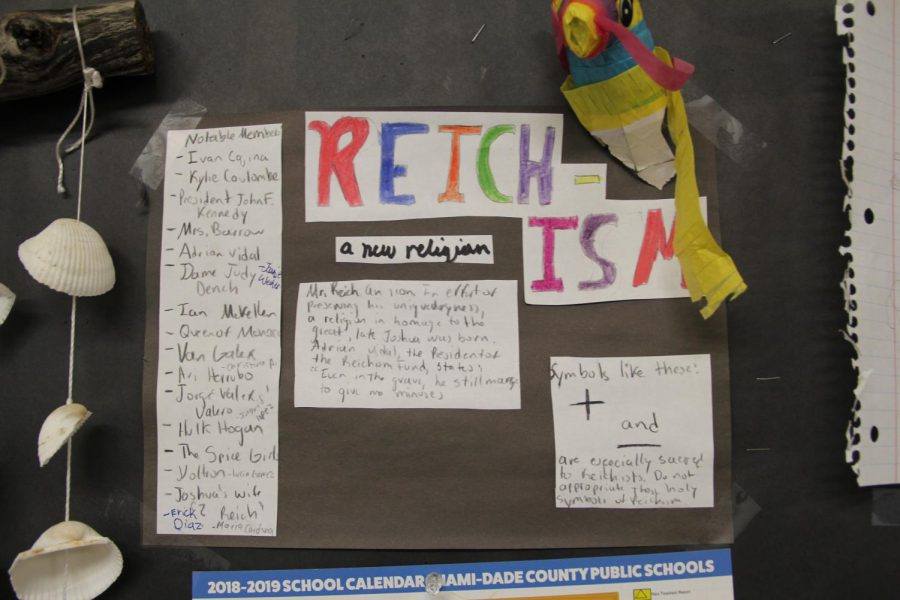 Notable Members
- Ivan Cajina
- Kylie Coulombe
- President John F.
Kennedy
- Mrs. Barrow
- Adrian Vidal
- Dame Judy
Dench
- Ian McKellen
- Queen of Monaco
- Van
- Ari
- Jorge Valero
Valero
- Hulk Hogan
- The Spice Girls
- Voltron
- Joshua's wife
- Erick Reich?
Diaz
REICH-
ISM
a new religion
Mr. Reich. An icon. In effort of
preserving his
a religion in homage to the
great, late Joshua was born.
Adrian Vidal, the President of
the Reichism Fund, states:
"Even in the grave, he still manages
to give me minuses
Symbols like these:
+
and
—
are especially sacred
to Reichists. Do not
appropriate these holy
symbols of Reichism
2018-2019 SCHOOL CALENDAR MIAMI-DADE COUNTY PUBLIC SCHOOLS